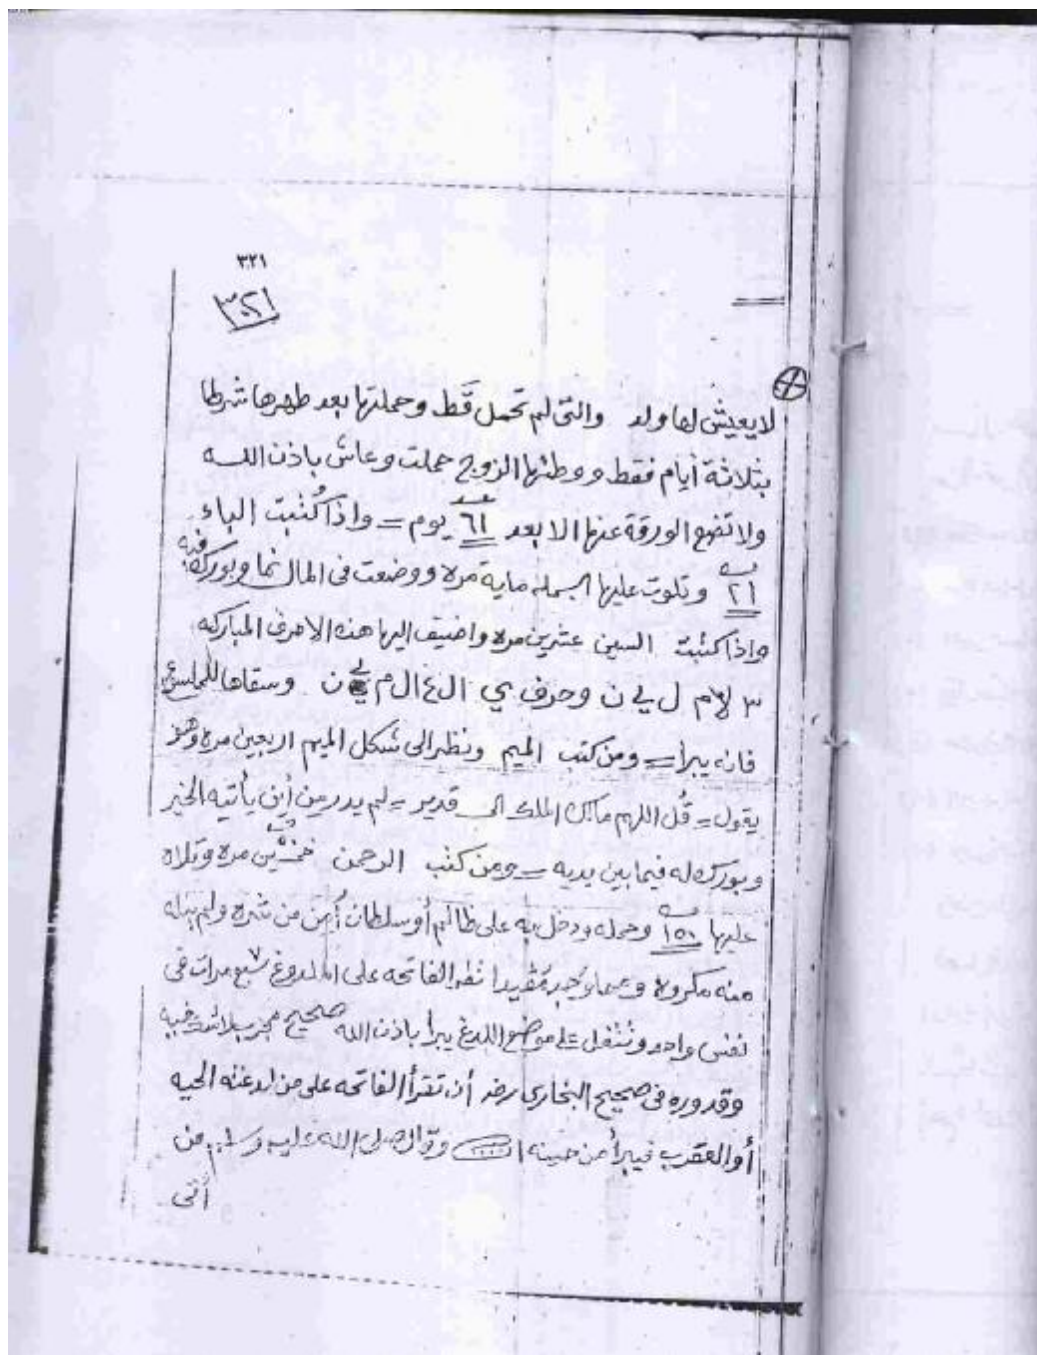 ٣٢١
٣٠٢١
لا يعيش لها ولد والتى لم تحمل قَط وحملتها بعد طهرها شرطا
بثلاثة أيام فقط ووطئها الزوج حملت وعاش باذن الله
ولا تنزع الورقة عنها الا بعد ٦١ يوم = واذا كُتبت الباء
٢١ وتلوت عليها البسمله ماية مره ووضعت فى المال نما وبورك فيه
واذا كتبت السين عشرين مره واضيف اليها هذه الاحرف المباركه
٣ لام ل ي ن وحرف ي ال ع ال م ي ن وسقاها للملسوع
فانه يبرا = ومن كتب الميم ونظر الى شكل الميم اربعين مره وهو
يقول = قُل اللهم مالك الملك الى قدير = لم يدر من أين يأتيه الخير
وبورك له فيما بين يديه = ومن كتب الرحمن خمسين مره وتلاه
عليها ١٥٠ وحمله ودخل به على ظالم أو سلطان أُمِنَ من شره ولم ينله
منه مكروه الفاتحه على الملدوغ سبع مرات فى
نفس واحد وتتفل على موضع اللدغ يبرأ باذن الله صحيح مجرب بلاشك فيه
وقد ورد فى صحيح البخارى أن تقرأ الفاتحه على من لدغته الحيه
أو العقرب فيبرأ من حينه وقال صلى الله عليه وسلم من
أتى